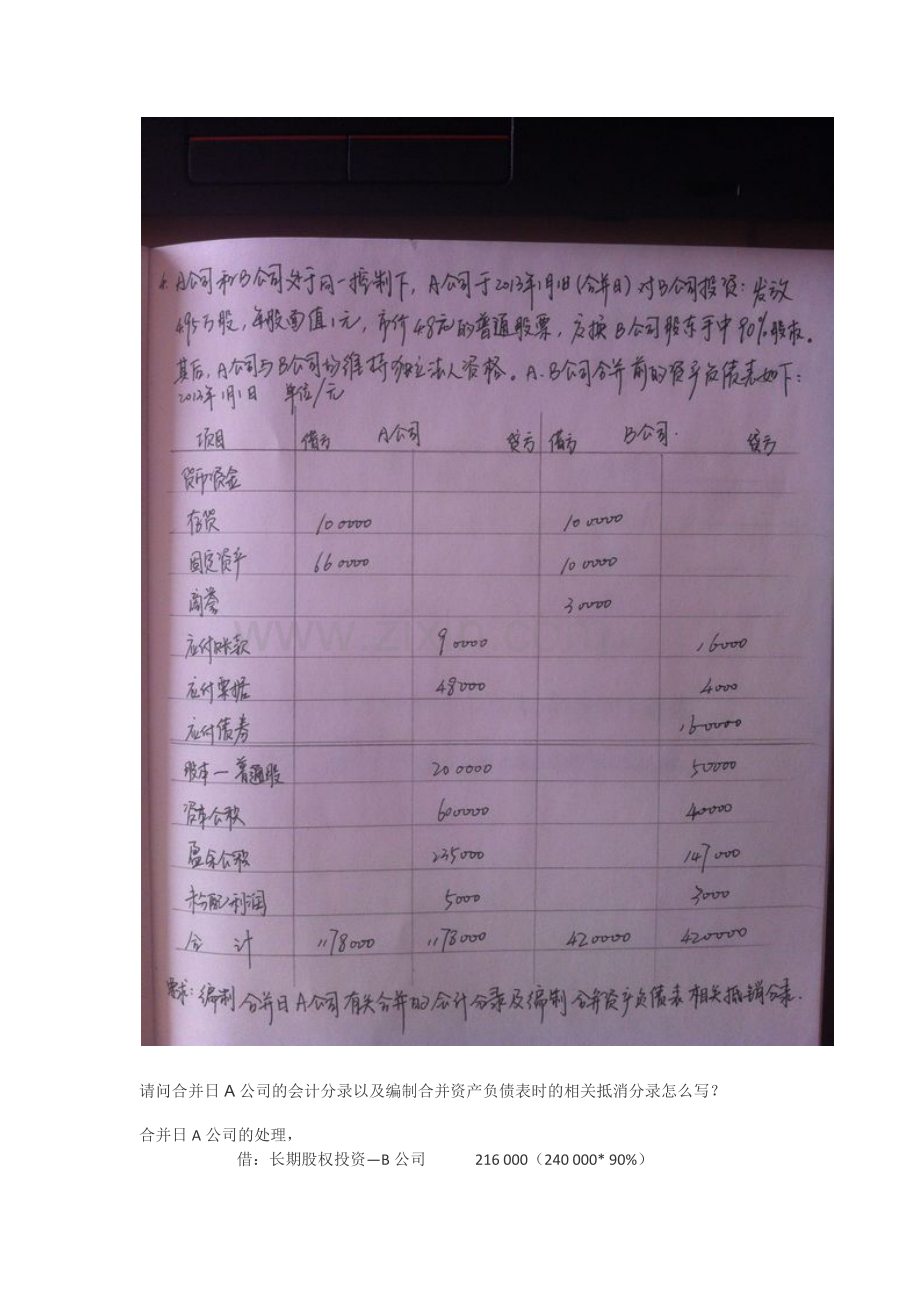 A公司和B公司处于同一控制下，A公司于2013年1月1日(合并日)对B公司投资：发放
495万股，每股面值1元，市价48元的普通股票，交换B公司股东手中90%股权。
其后，A公司与B公司均维持独立法人资格。A、B公司合并前的资产负债表如下：
2013年1月1日 单位/元
项目 借方 A公司 贷方 借方 B公司 贷方
货币资金
存货 100000 100000
固定资产 660000 100000
商誉 30000
应付账款 90000 16000
应付票据 48000 4000
应付债券 160000
股本一普通股 200000 50000
资本公积 600000 40000
盈余公积 235000 147000
未分配利润 5000 3000
合 计 1178000 1178000 420000 420000
要求：编制合并日A公司有关合并的会计分录及编制合并资产负债表相关抵销分录.
www.zixin.com.cn
请问合并日 A 公司的会计分录以及编制合并资产负债表时的相关抵消分录怎么写？
合并日 A 公司的处理，
借：长期股权投资—B 公司 216 000（240 000* 90%）